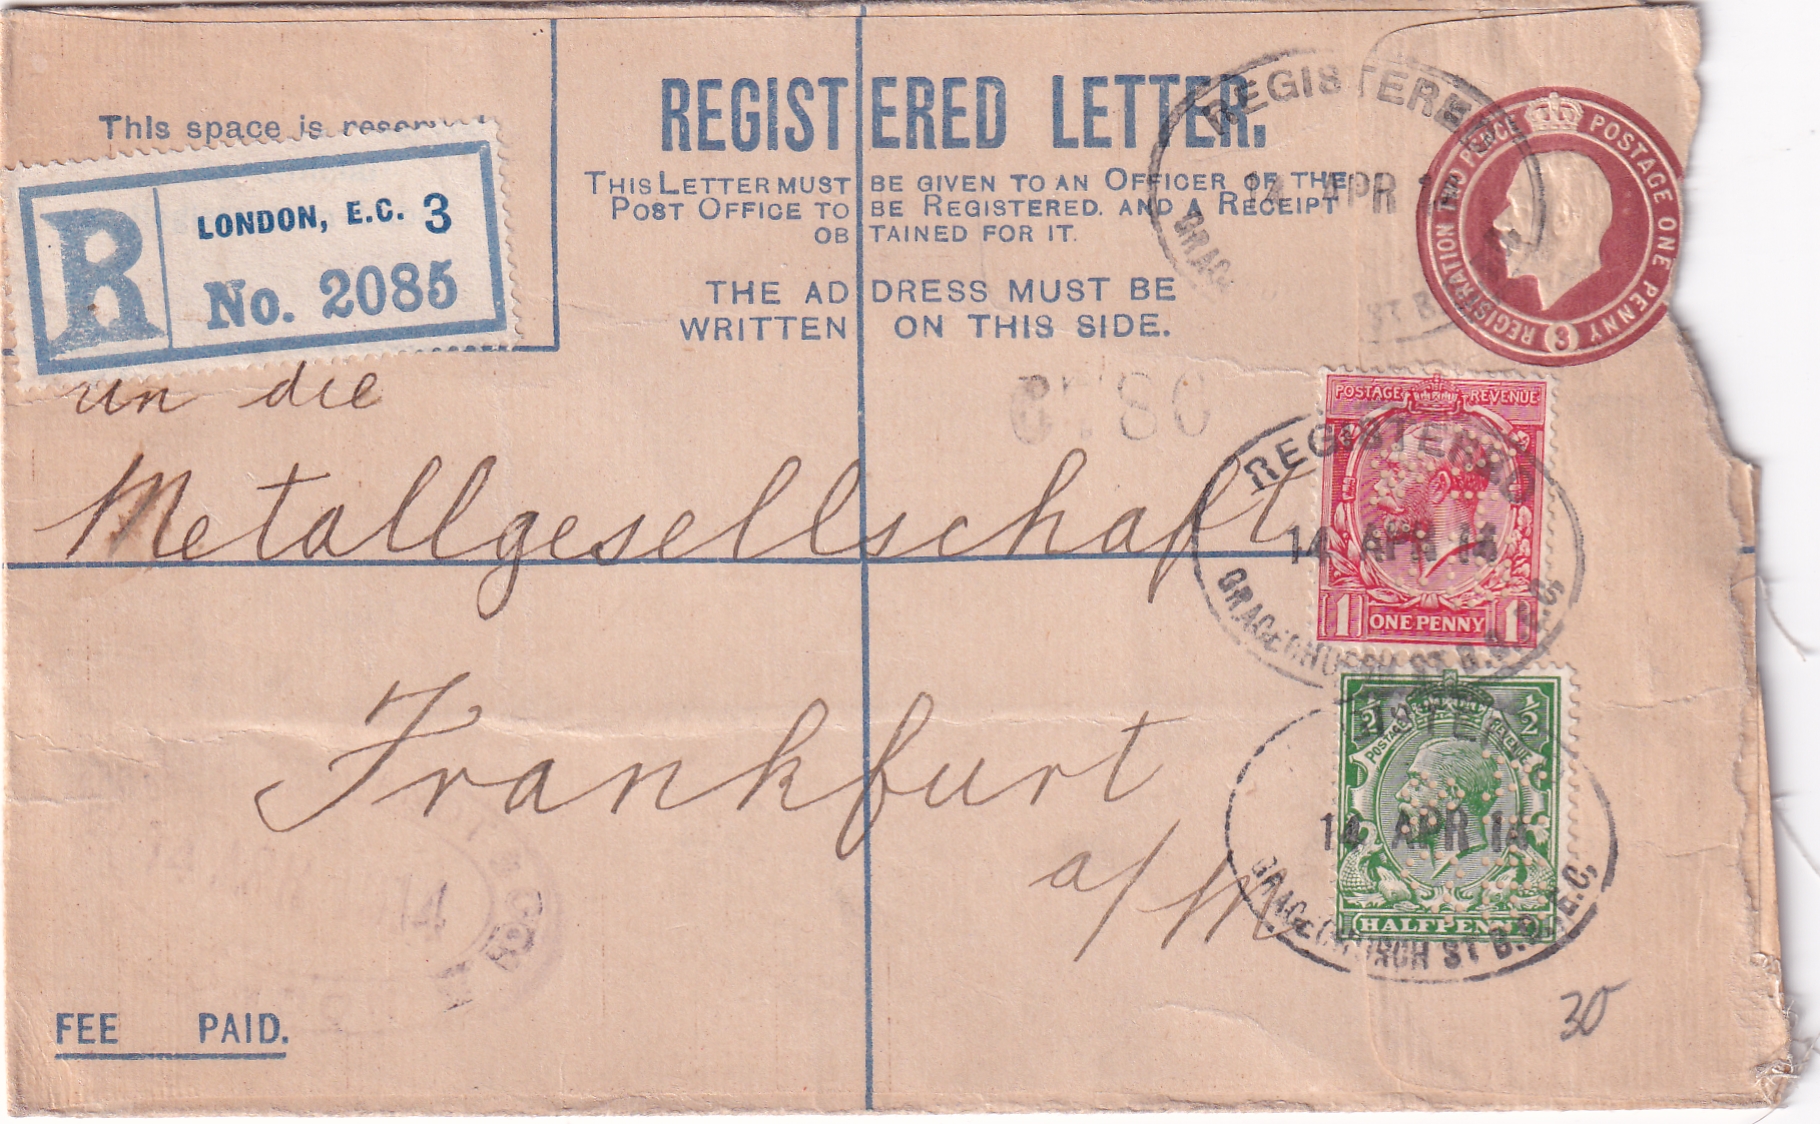 This space is reserved
REGISTERED LETTER.
THIS LETTER MUST BE GIVEN TO AN OFFICER OF THE
POST OFFICE TO BE REGISTERED. AND A RECEIPT
OBTAINED FOR IT.
THE ADDRESS MUST BE
WRITTEN ON THIS SIDE.
R
LONDON, E.C. 3
No. 2085
REGISTERED
14 APR
GRACE
ST B
REGISTRATION TWO PENCE
POSTAGE ONE PENNY
3
an die
Metallgesellschaft
Frankfurt
a/M
POSTAGE REVENUE
1 ONE PENNY 1
REGISTERED
14 APR 14
GRACECHURCH ST B.O. E.C.
1/2 1/2
POSTAGE REVENUE
HALFPENNY
ISTER
14 APR 14
GRACECHURCH ST B.O. E.C.
14
FEE PAID.
30